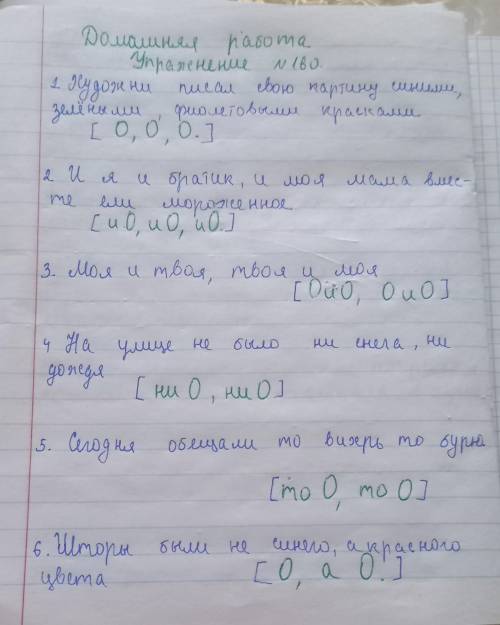 Домашняя работа
Упражнение №180.
1 Художни писал свою картину синими,
зелёными, фиолетовыми красками
[ О, О, О.]
2. И я и братик, и моя мама вмес-
те ели мороженное
[иО, иО, иО.]
3. Моя и твоя, твоя и моя
[ОиО, ОиО]
4 На улице не было ни снега, ни
дождя
[ни О, ни О]
5. Сегодня обещали то вихрь то буря
[то О, то О]
6. Шторы были не синего, а красного
цвета
[О, а О.]